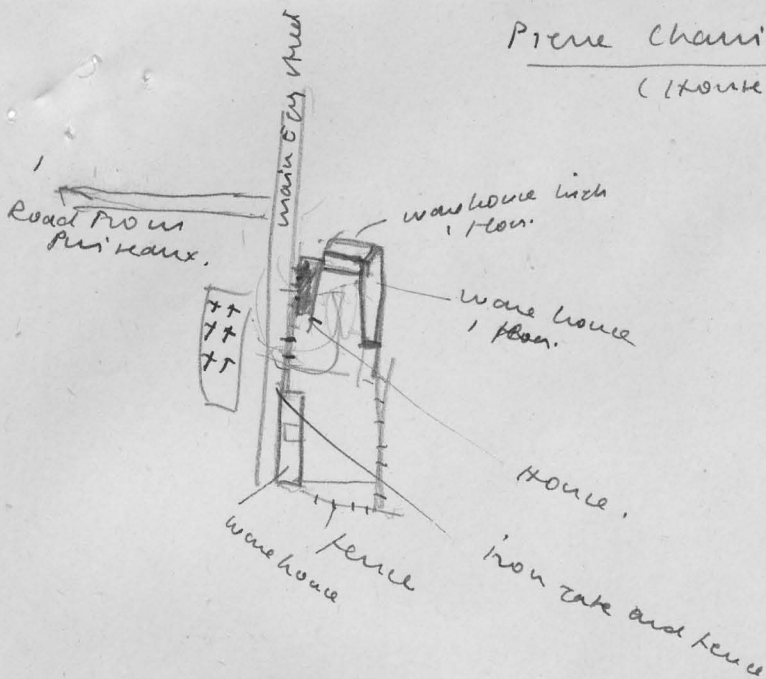 Pierre Charri
(House
main Egry street
Road From
Puiseaux.
warehouse high
1 floor.
ware house
1 floor.
House.
iron gate and fence
fence
warehouse